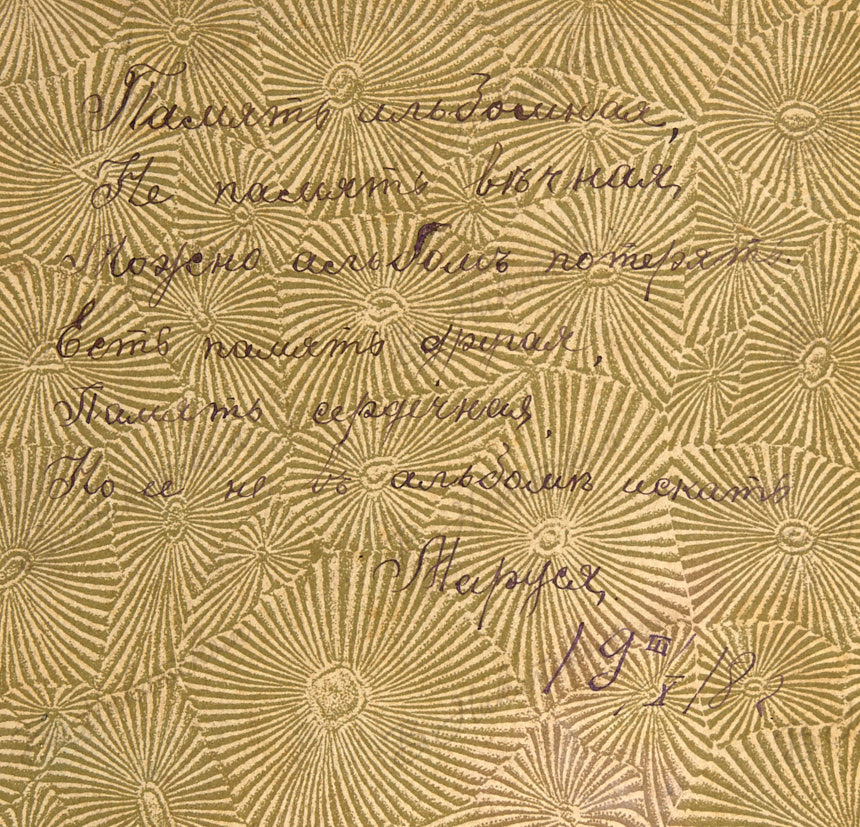 Память альбомная,
Не память вѣчная,
Можно альбомъ потерять.
Есть память другая,
Память сердечная,
Но ее не въ альбомѣ искать
Маруся.
19 III/X 18